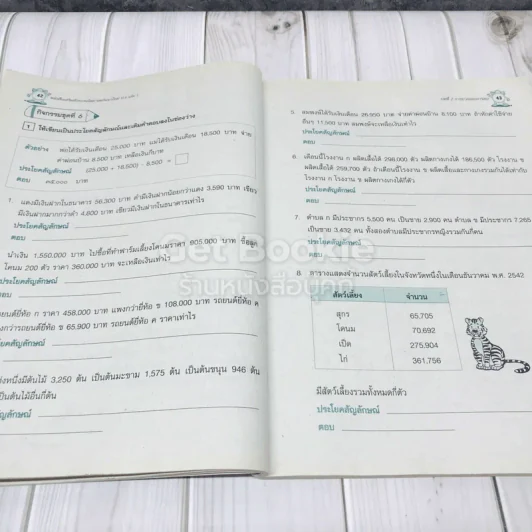 42
กิจกรรมชุดที่ 6
1 ให้เขียนเป็นประโยคสัญลักษณ์และเติมคำตอบลงในช่องว่าง
ตัวอย่าง พ่อได้รับเงินเดือน 25,000 บาท แม่ได้รับเงินเดือน 18,500 บาท จ่าย
ค่าผ่อนบ้าน 8,500 บาท เหลือเงินกี่บาท
ประโยคสัญลักษณ์ (25,000 + 18,500) - 8,500 =
ตอบ ๓๕,๐๐๐ บาท
1. แดงมีเงินฝากในธนาคาร 56,300 บาท ดำมีเงินฝากน้อยกว่าแดง 3,590 บาท เขียว
มีเงินฝากมากกว่าดำ 4,800 บาท เขียวมีเงินฝากในธนาคารเท่าไร
ประโยคสัญลักษณ์
ตอบ
นำเงิน 1,550,000 บาท ไปซื้อที่ทำฟาร์มเลี้ยงโคนมราคา 605,000 บาท ซื้อลูก
โคนม 200 ตัว ราคา 360,000 บาท จะเหลือเงินเท่าไร
ประโยคสัญลักษณ์
ตอบ
รถยนต์ยี่ห้อ ก ราคา 458,000 บาท แพงกว่ายี่ห้อ ข 108,000 บาท รถยนต์ยี่ห้อ ค
งกว่ารถยนต์ยี่ห้อ ข 65,900 บาท รถยนต์ยี่ห้อ ค ราคาเท่าไร
โยคสัญลักษณ์
บ
งหนึ่งมีต้นไม้ 3,250 ต้น เป็นต้นมะขาม 1,575 ต้น เป็นต้นขนุน 946 ต้น
เป็นต้นไม้อื่นกี่ต้น
สัญลักษณ์
43
5. สมพงษ์ได้รับเงินเดือน 26,500 บาท จ่ายค่าผ่อนบ้าน 8,100 บาท
อื่นๆ 11,500 บาท สมพงษ์จะเหลือเงินเท่าไร
ประโยคสัญลักษณ์
ตอบ
6. เดือนนี้โรงงาน ก ผลิตเสื้อได้ 298,000 ตัว ผลิตกางเกงได้ 186,500 ตัว โรงงาน ข
ผลิตเสื้อได้ 259,700 ตัว ถ้าเดือนนี้โรงงาน ข ผลิตเสื้อและกางเกงรวมกันได้เท่ากับ
โรงงาน ก โรงงาน ข ผลิตกางเกงได้กี่ตัว
ประโยคสัญลักษณ์
ตอบ
7. ตำบล ก มีประชากร 5,500 คน เป็นชาย 2,900 คน ตำบล ข มีประชากร 7,255
เป็นชาย 3,432 คน ทั้งสองตำบลมีประชากรหญิงรวมกันกี่คน
ประโยคสัญลักษณ์
ตอบ
8. ตารางแสดงจำนวนสัตว์เลี้ยงในจังหวัดหนึ่งในเดือนธันวาคม พ.ศ. 2542
สัตว์เลี้ยง จำนวน
สุกร 65,705
โคนม 70,692
เป็ด 275,904
ไก่ 361,756
มีสัตว์เลี้ยงรวมทั้งหมดกี่ตัว
ประโยคสัญลักษณ์
ตอบ
Get Bookie
ร้านหนังสือมุก